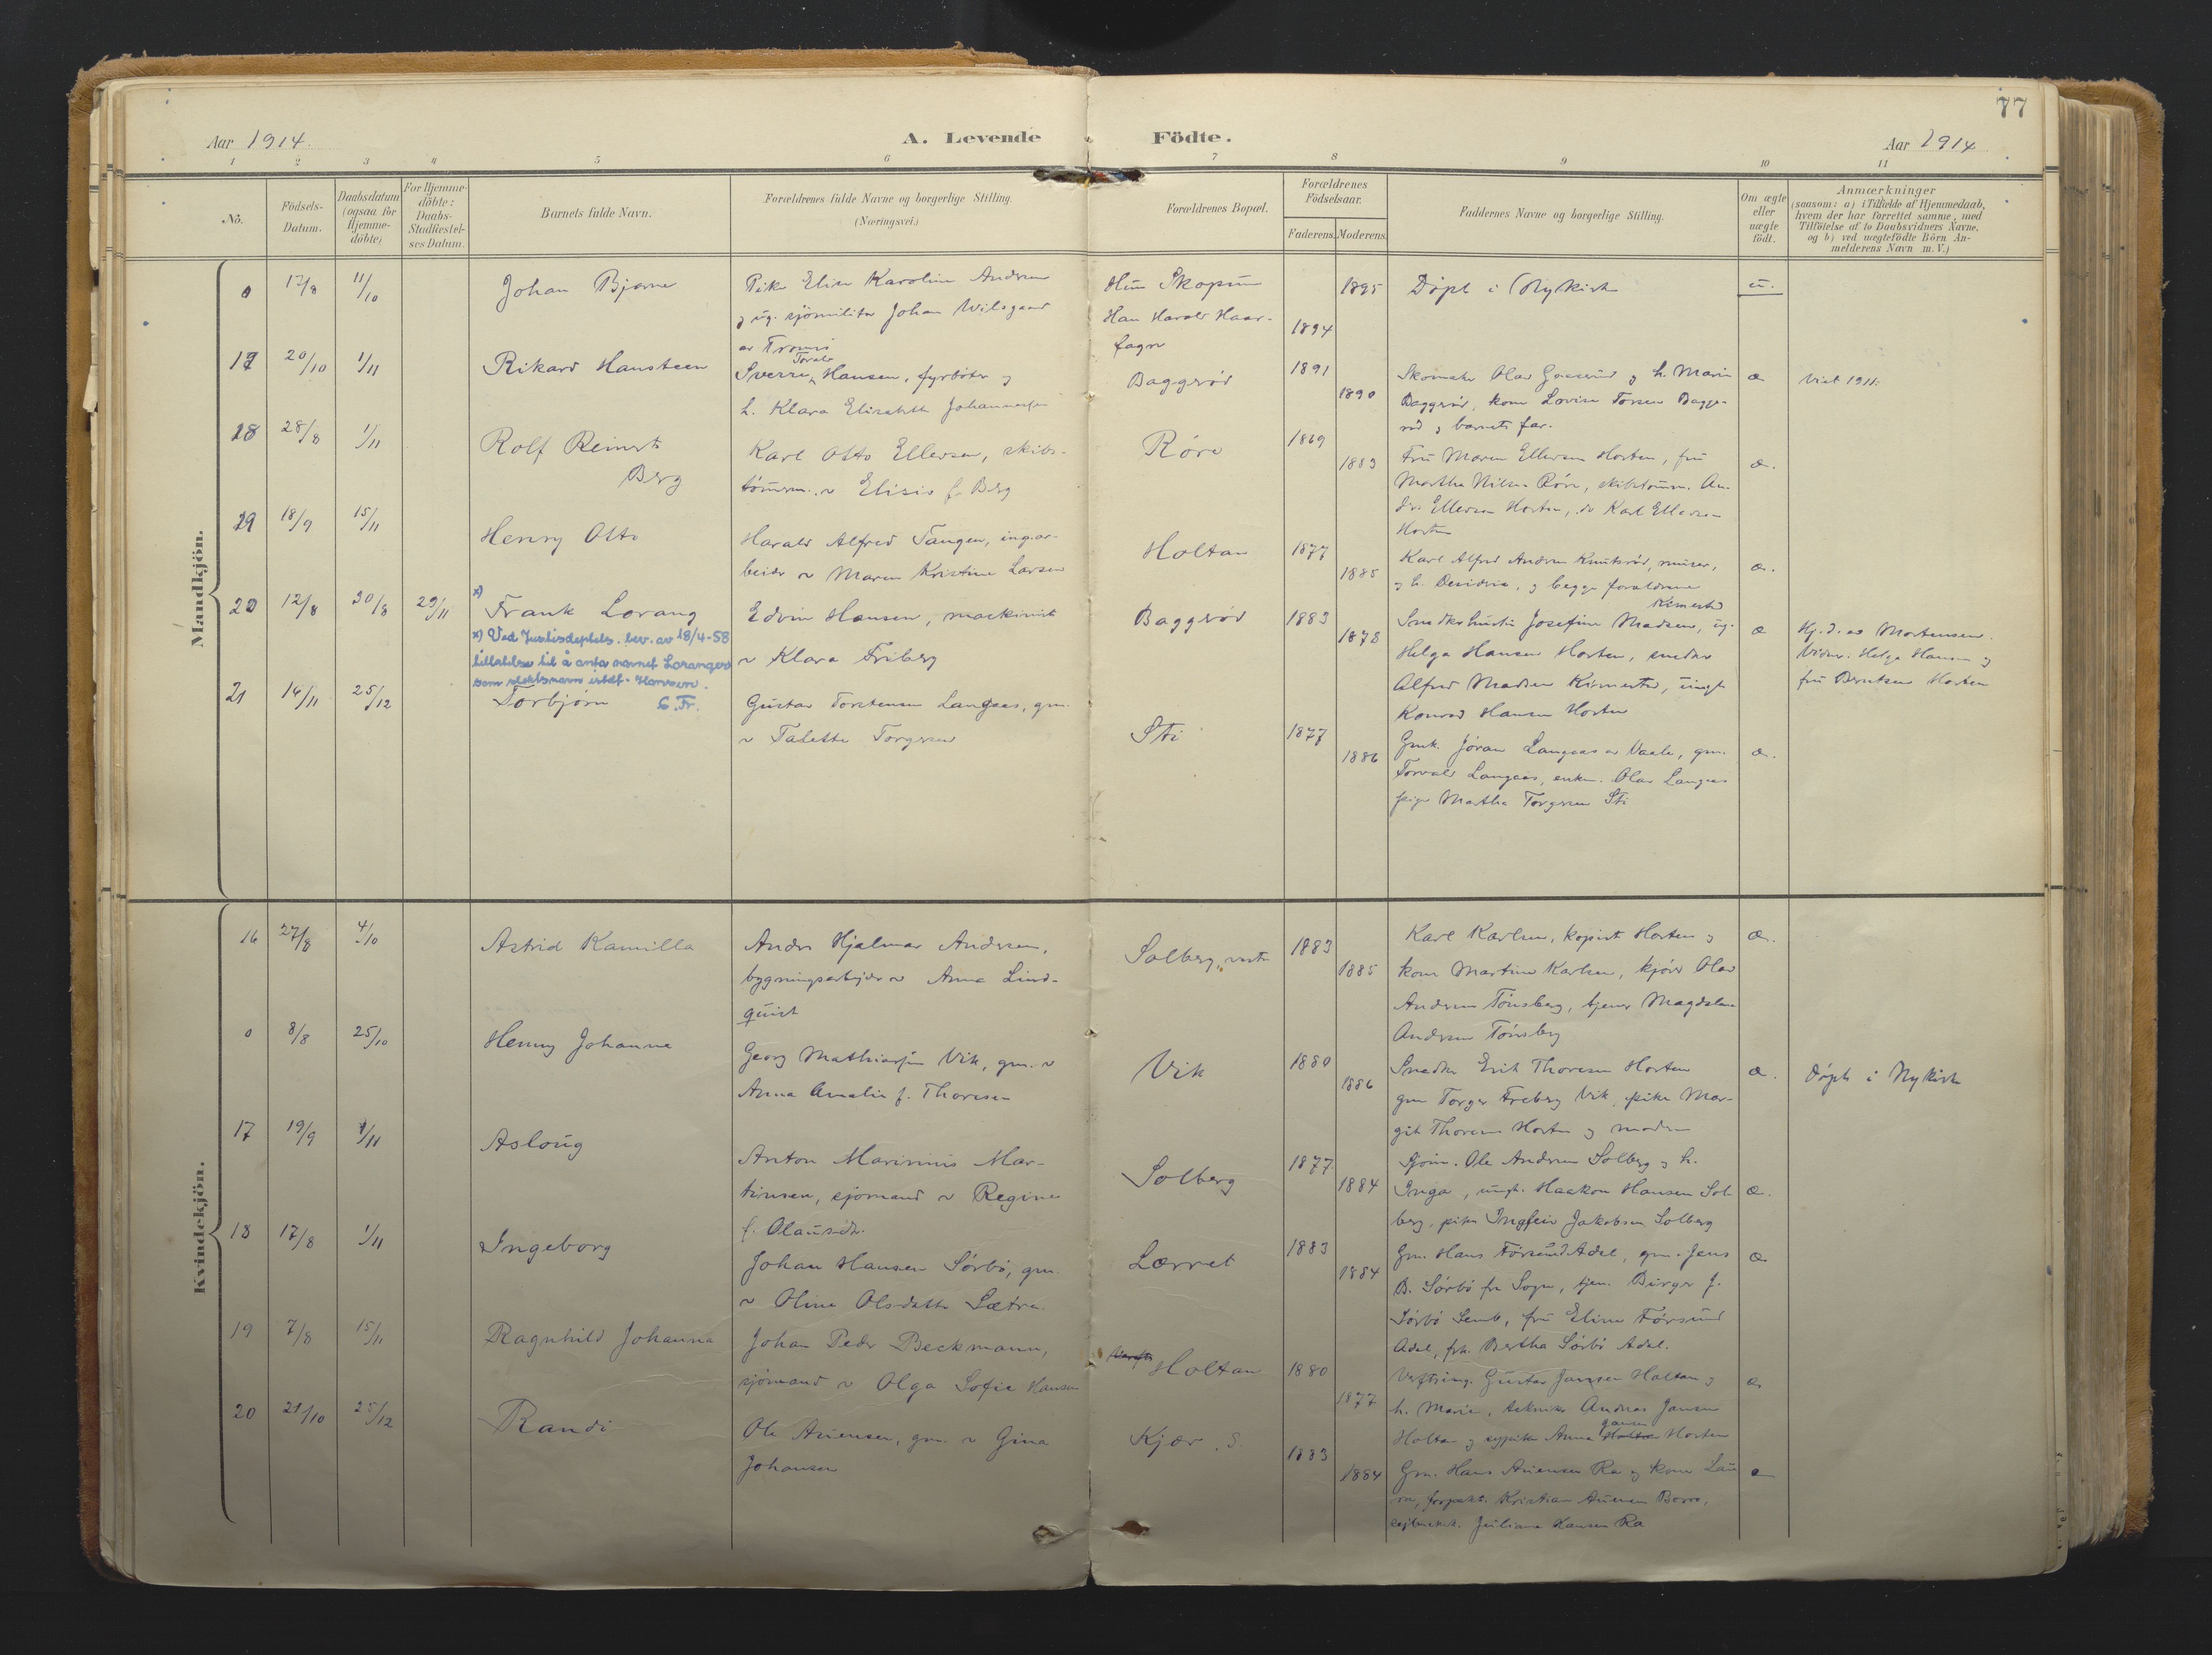 77
Aar 1914.
A. Levende Födte.
Aar 1914
1 2 3 4 5 6 7 8 9 10 11
No.
Födsels-Datum.
Daabsdatum (ogsaa for Hjemmedöbte)
For Hjemmedöbte: Daabs-Stadfæstelses Datum.
Barnets fulde Navn.
Forældrenes fulde Navne og borgerlige Stilling. (Næringsvei.)
Forældrenes Bopæl.
Forældrenes Födselsaar.
Faderens. Moderens.
Faddernes Navne og borgerlige Stilling.
Om ægte eller uægte födt.
Anmærkninger
(saasom: a) i Tilfælde af Hjemmedaab,
hvem der har forrettet samme, med
Tilföielse af to Daabsvidners Navne,
og b) ved uægtefödte Börn An-
melderens Navn m. V.)
Mandkjön.
0 17/8 11/10 Johan Bjarne
Pike Elise Karoline Andrsen
og ug. sjømilitær Johan Wilsgaard
av Tromsø
Hun Skopum
Han Harald Haar-
fagre
1894 1895
Døpt i Nykirke
u.
17 20/10 1/11 Rikard Hansteen
Sverre Torals Hansen, fyrbøter og
h. Klara Elisabeth Johannessen
Baggerød
1891 1890
Skomaker Olaf og h. Marie
Baggerød, kone Lovise Torsen Bagge-
rød og barnets far.
æ
Viet 1911.
18 28/8 1/11 Rolf Reinert
Berg
Karl Otto Ellevsen, skibs-
tømerm. v Elisiv f. Berg
Røre
1869 1883
Fru Maren Ellevsen Horten, fru
Martha Nilsen Røre, skibstømm. An-
dr. Ellevsen Horten, do Karl Ellevsen
Horten
æ.
19 18/9 15/11 Henry Otto
Harald Alfred Tangen, ing.ar-
beider v Maren Kristine Larsen
Holtan
1877 1885
Karl Alfred Andrsen Knutsrød, murer,
og h. og begge forældrene
æ.
20 12/8 30/8 29/11
x) Frank Lorang
x) Ved Justisdeptets. brv. av 18/4-58
tillatelse til å anta navnet Loranger
som slektsnavn istdf. Hansen.
G. Fr.
Edvin Hansen, maskinist
v Klara Friberg
Baggerød
1883 1878
Snedkerhustru Josefine Madsen Kirnested, ug.
Helga Hansen Horten, snedker
Alfred Madsen Kirnested, ungk.
Konrad Hansen Horten
æ
Hj. d. av Mortensen.
Vidner. Helga Hansen og
fru Berntsen Horten
21 14/11 25/12 Torbjørn
Gustav Torstensen Langaas, gm.
v Talette Torgersen
Sti
1877 1886
Gmk. Jøran Langaas av Vaale, gm.
Torvald Langaas, enkem. Olav Langaas
pige Martha Torgersen Sti
æ.
Kvindekjön.
16 27/8 4/10 Astrid Kamilla
Anders Hjalmar Andersen,
bygningsarbejder v Anna Lind-
quist
Solberg, vestre
1883 1885
Karl Karlsen, kopist Horten og
kone Martine Karlsen, kjører Olav
Andrsen Tønsberg, tjener Magdalene
Andrsen Tønsberg
æ.
0 8/8 25/10 Henny Johanne
Georg Mathiassen Vik, gm. v
Anna Amalie f. Thoresen
Vik
1880 1886
Snedker Erik Thoresen Horten
gm Torger Freberg Vik, pike Mar-
git Thoresen Horten og moderen
æ.
døpt i Nykirke
17 19/9 1/11 Asloug
Anton Marinius Mar-
tinsen, sjømand v Regine
f. Olausdtr.
Solberg
1877. 1884
Sjøm. Ole Andrsen Solberg og h.
Inga, ungk. Haakon Hansen Sol-
berg, pike Jakobsen Solberg
æ.
18 17/8 1/11 Ingeborg
Johan Hansen Sørbø, gm.
v Oline Olsdatter Sætra.
Lærret
1883 1884
Gm. Hans Førsund Adal, gm. Jens
B. Sørbø fra Sogn, tjen. Birger J.
Sørbø Semb, fru Eline Førsund
Adal, frk. Bertha Sørbø Adal.
æ
19 7/8 15/11 Ragnhild Johanna
Johan Peder Beckmann,
sjømand v Olga Sofie Hansen
Holtan
1880 1877
Verftsing. Gustav Jansen Holtan og
h. Marie, tekniker Andreas Jansen
Holtan og sypike Anna Jansen Horten
æ
20 21/10 25/12 Randi
Ole Auensen, gm. v Gina
Johansen
Kjær. S.
1883 1884
Gm. Hans Auensen Ra og kone Lau-
ra, forpakt. Kristian Auensen Borre,
Juliane Hansen Ra
æ